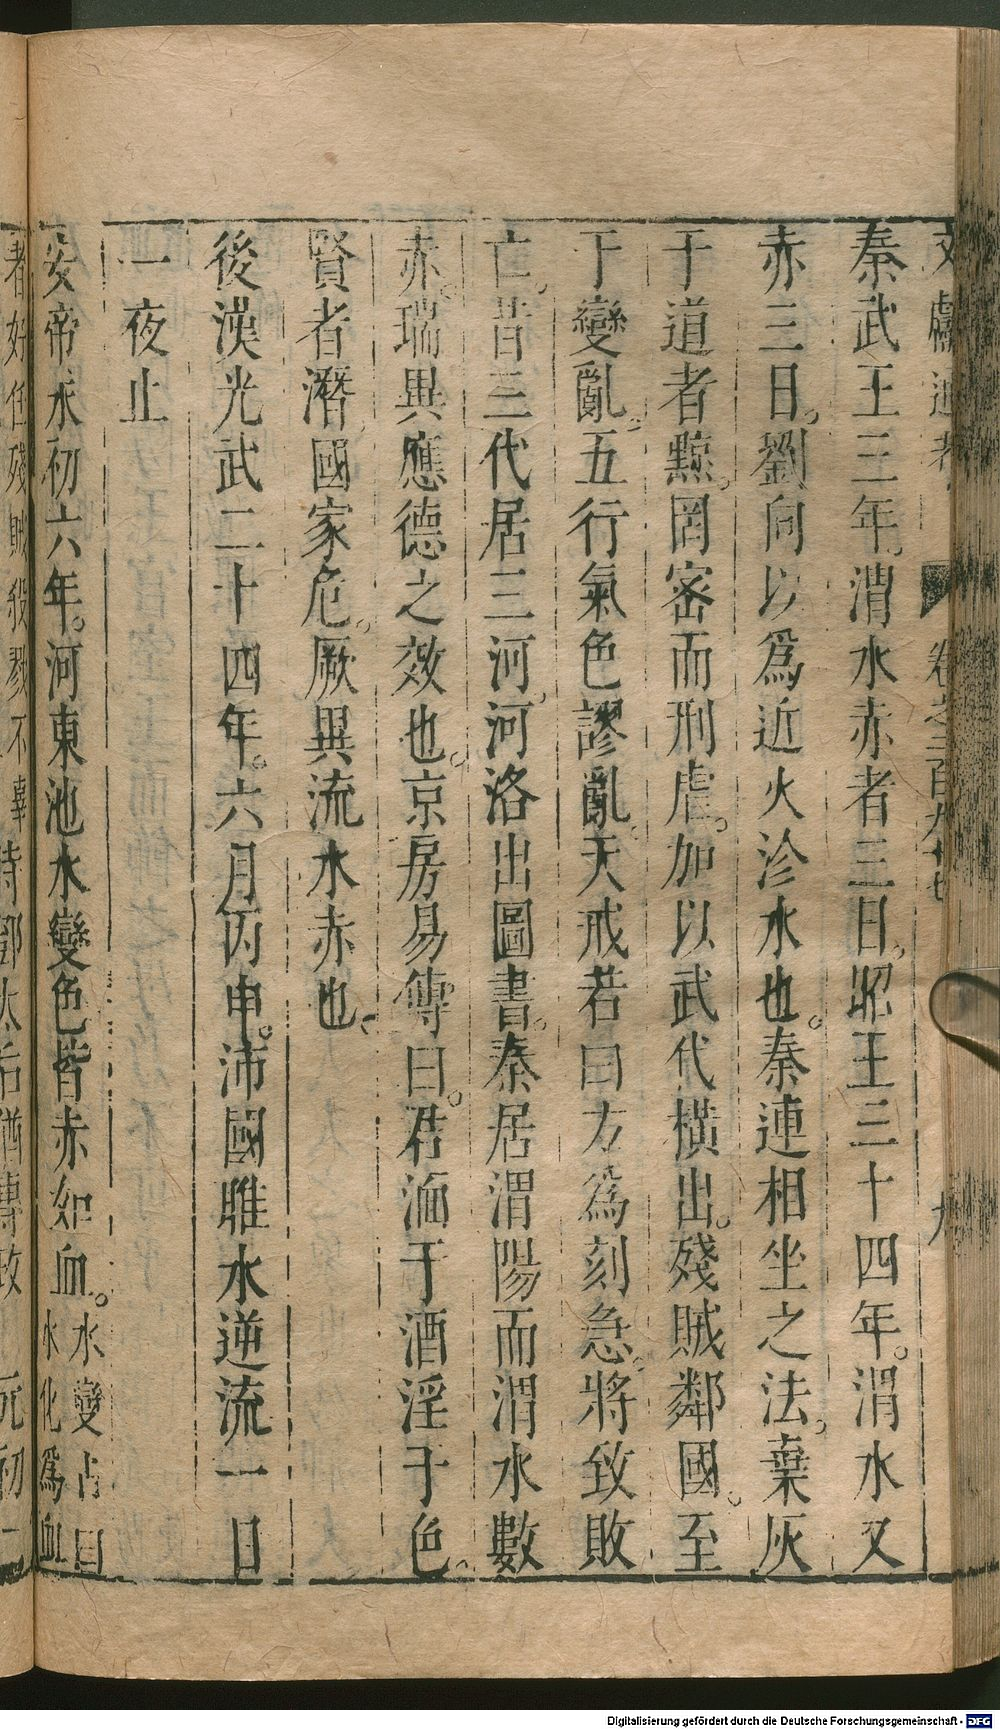 文獻通考
卷之二百九十七
九
秦武王三年。渭水赤者三日。昭王三十四年。渭水又
赤三日。劉向以爲近火沴水也。秦連相坐之法。棄灰
于道者黥。罔密而刑虐。加以武代橫出。殘賊鄰國。至
于變亂。五行氣色謬亂。天戒若曰。方爲刻急。將致敗
亡。昔三代居三河。河洛出圖書。秦居渭陽而渭水數
赤。瑞異應德之效也。京房易傳曰。君湎于酒淫于色。
賢者潛國家危。厥異流水赤也。
後漢光武二十四年。六月丙申。沛國睢水逆流一日
一夜止
安帝永初六年。河東池水變色皆赤如血。水變占曰
水化爲血
者好任殘賊殺戮不辜時鄧太后猶專政 元初二
Digitalisierung gefördert durch die Deutsche Forschungsgemeinschaft - DFG